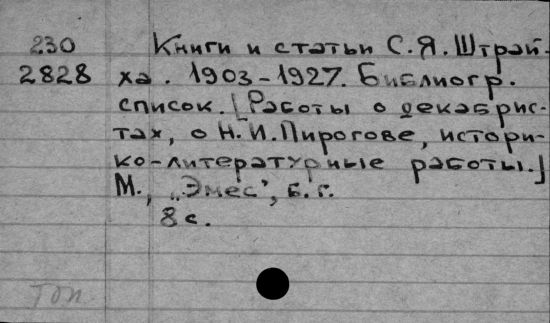 230 Книги и статьи С.Я. Штрай-
2828 ха. 1903-1927. Библиогр.
список. [Работы о декабрис-
тах, о Н.И.Пирогове, истори-
ко-литературные работы.]
М., „Эмес", б.г.
8 с.
Топ